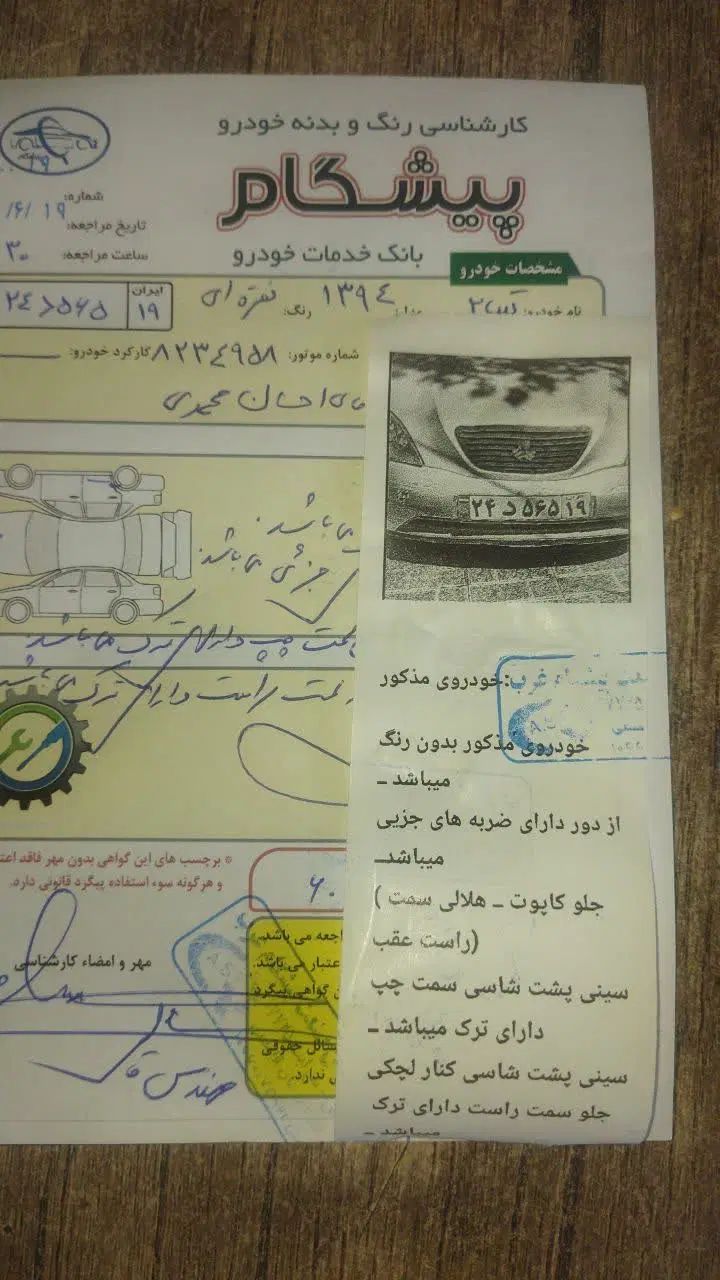 کارشناسی رنگ و بدنه خودرو
پیشگام
بانک خدمات خودرو
شماره:
۱۹ /۶/
تاریخ مراجعه:
ساعت مراجعه: ۳۰
مشخصات خودرو
نام خودرو:
۱۳۹۴ رنگ: نقره ای
ایران
۱۹
۲۴ د ۵۶۵
شماره موتور: ۸۲۳۴۹۵۸ کارکرد خودرو:
احسان محمدی
می باشد.
جزئی می باشد.
سمت چپ دارای ترک می باشد
سمت راست دارای ترک می باشد
* برچسب های این گواهی بدون مهر فاقد اعت
و هرگونه سوء استفاده پیگرد قانونی دارد.
مهر و امضاء کارشناسی
اجعه می باشد.
عتبار می باشد.
ن گواهی پیگرد
سائل حقوقی
ی ندارد.
مهندس
۲۴ د ۵۶۵ ۱۹
خودروی مذکور:
خودروی مذکور بدون رنگ
میباشد ـ
از دور دارای ضربه های جزیی
میباشدـ
جلو کاپوت ـ هلالی سمت )
(راست عقب
سینی پشت شاسی سمت چپ
دارای ترک میباشد ـ
سینی پشت شاسی کنار لچکی
جلو سمت راست دارای ترک
میباشد ـ